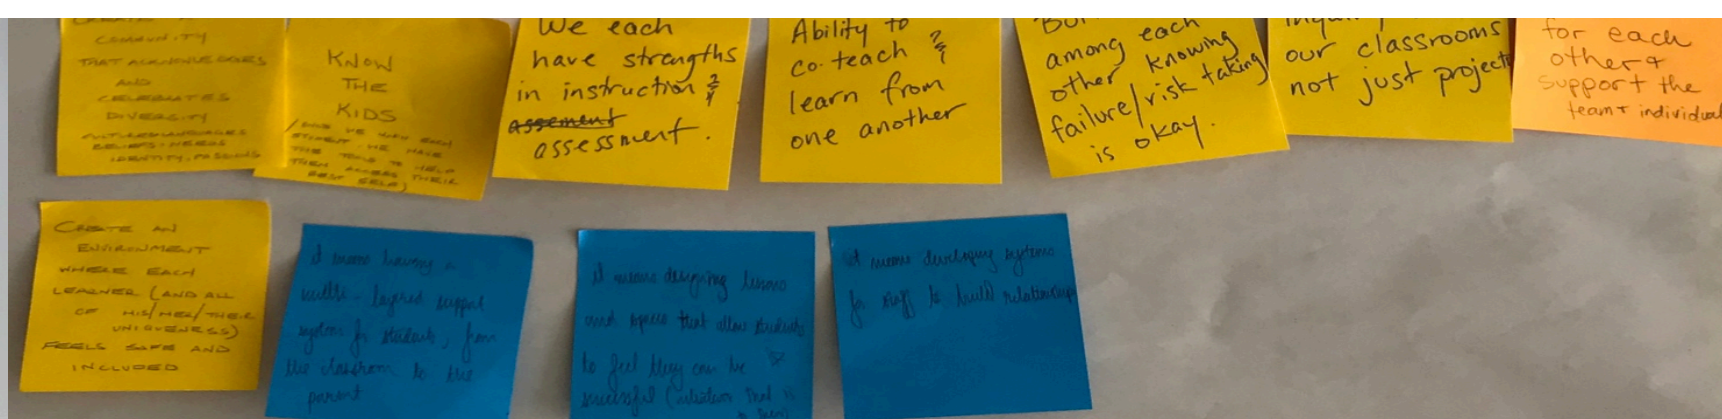 CREATE A
COMMUNITY
THAT ACKNOWLEDGES
AND
CELEBRATES
DIVERSITY
BELIEFS, NEEDS
IDENTITY, PASSIONS
KNOW
THE
KIDS
(AND WE KNOW EACH
STUDENT. WE HAVE
THE TOOLS TO HELP
THEM ACCESS THEIR
BEST SELF)
We each
have strengths
in instruction &
assement
assessment.
Ability to
co-teach &
learn from
one another
among each
other knowing
failure/risk taking
is okay.
our classrooms
not just projects
for each
other &
support the
team + individual
CREATE AN
ENVIRONMENT
WHERE EACH
LEARNER (AND ALL
OF HIS/HER/THEIR
UNIQUENESS)
FEELS SAFE AND
INCLUDED
It means having a
multi-layered support
system for students, from
the classroom to the
parent
It means designing lessons
and spaces that allow students
to feel they can be
successful
It means developing systems
for staff to build relationships